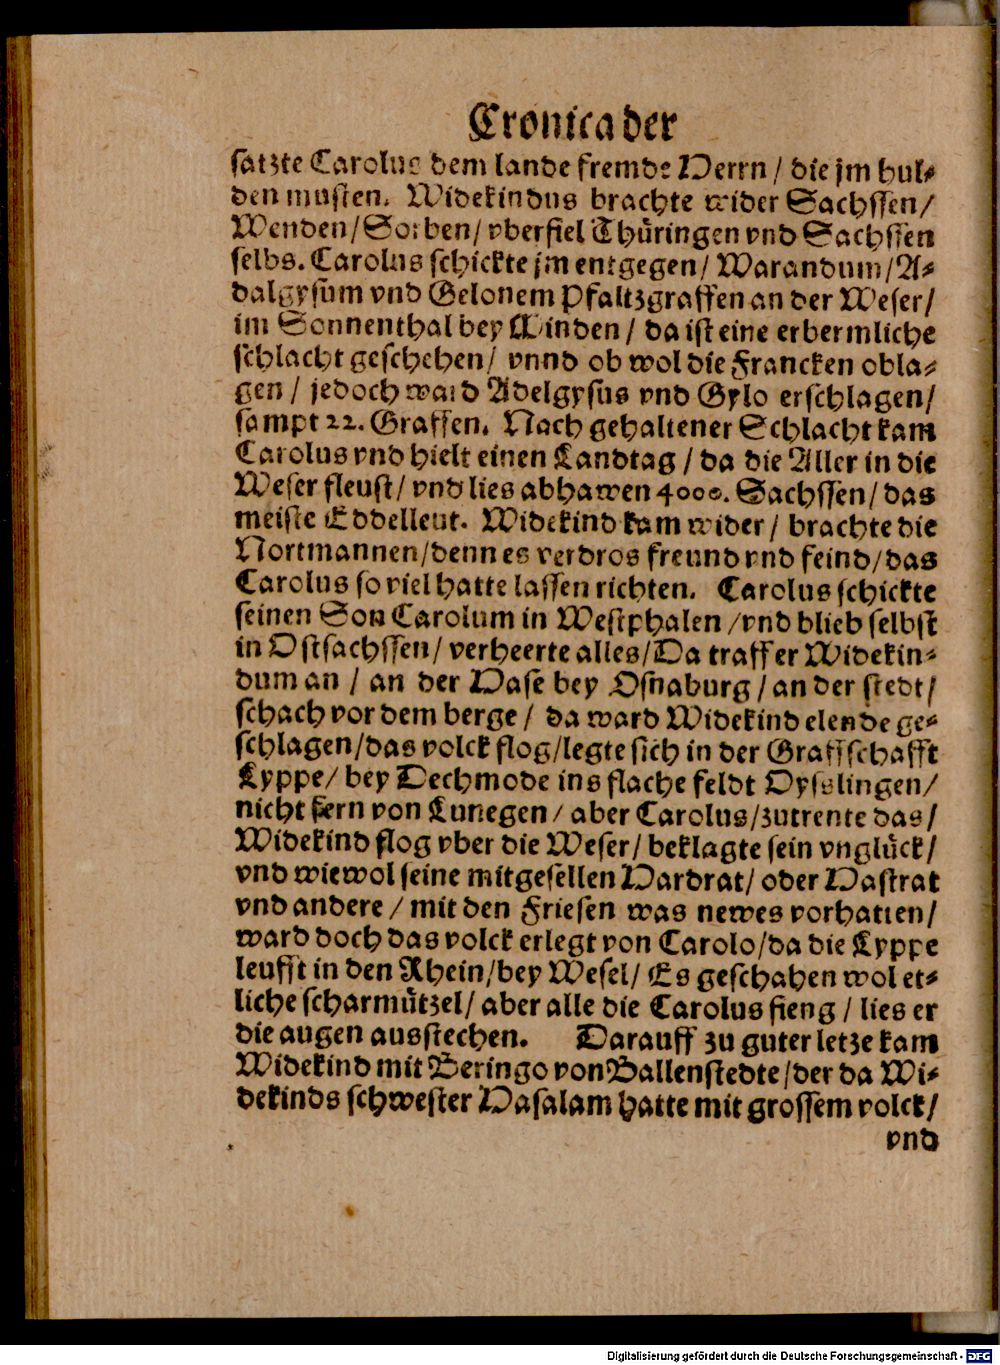 Cronica der
satzte Carolus dem lande fremde Herrn / die jm hul-
den musten. Widekindus brachte wider Sachssen/
Wenden/Sorben/ vberfiel Thüringen vnd Sachssen
selbs. Carolus schickte jm entgegen/ Warandum/A-
dalgysum vnd Gelonem Pfaltzgraffen an der Weser/
im Sonnenthal bey Minden / da ist eine erbermliche
schlacht geschehen/ vnnd ob wol die Francken obla-
gen / jedoch ward Adelgysus vnd Gylo erschlagen/
sampt 22. Graffen. Nach gehaltener Schlacht kam
Carolus vnd hielt einen Landtag / da die Aller in die
Weser fleust/ vnd lies abhawen 4000. Sachssen/ das
meiste Eddelleut. Widekind kam wider / brachte die
Nortmannen/denn es verdros freund vnd feind/das
Carolus so viel hatte lassen richten. Carolus schickte
seinen Son Carolum in Westphalen /vnd blieb selbst
in Ostsachssen/ verheerte alles/Da traff er Widekin-
dum an / an der Hase bey Osnaburg / an der stedt/
schach vor dem berge / da ward Widekind elende ge-
schlagen/das volck flog/legte sich in der Graffschafft
Lyppe/ bey Dechmode ins flache feldt Oysslingen/
nicht fern von Lunegen / aber Carolus/zutrente das/
Widekind flog vber die Weser/ beklagte sein vnglück/
vnd wiewol seine mitgesellen Hardrat/ oder Hastrat
vnd andere / mit den Friesen was newes vorhatten/
ward doch das volck erlegt von Carolo/da die Lyppe
leufft in den Rhein/bey Wesel/ Es geschahen wol et-
liche scharmützel/ aber alle die Carolus fieng / lies er
die augen ausstechen. Darauff zu guter letze kam
Widekind mit Beringo von Ballenstedte/der da Wi-
dekinds schwester Hasalam hatte mit grossem volck/
vnd
Digitalisierung gefördert durch die Deutsche Forschungsgemeinschaft - DFG